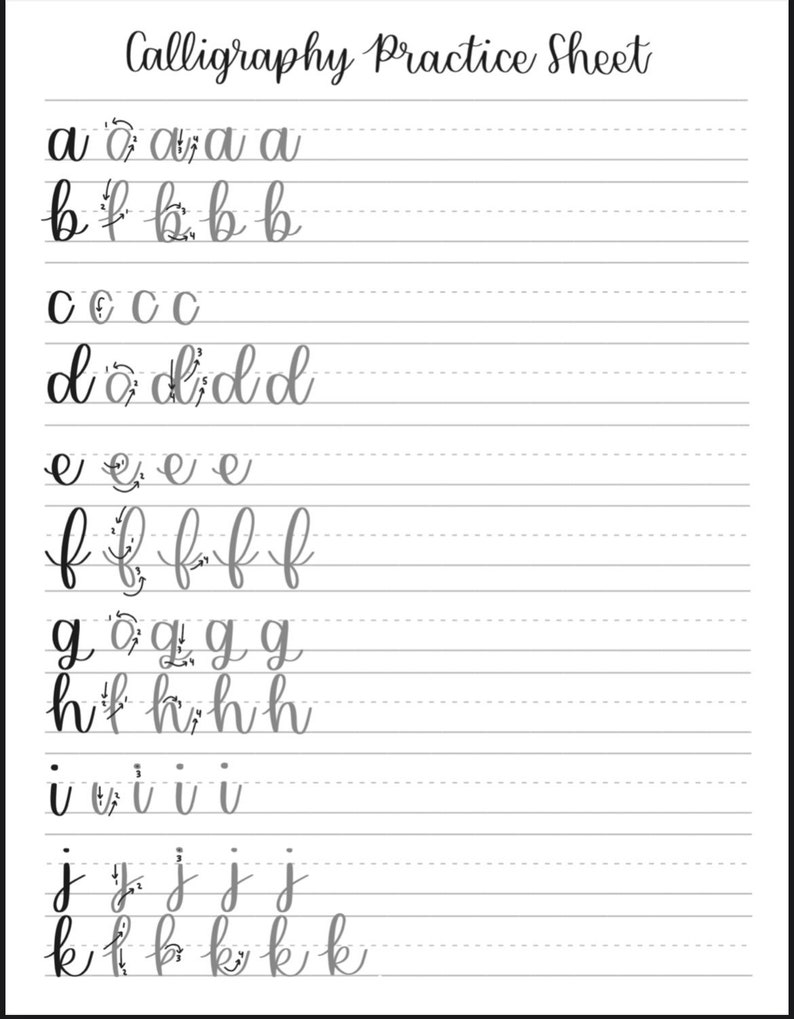 Calligraphy Practice Sheet
a o a a a
b l b b b
c c c c
d o d d d
e e e e
f f f f f
g o g g g
h l h h h
i i i i i
j j j j j
k l k k k k